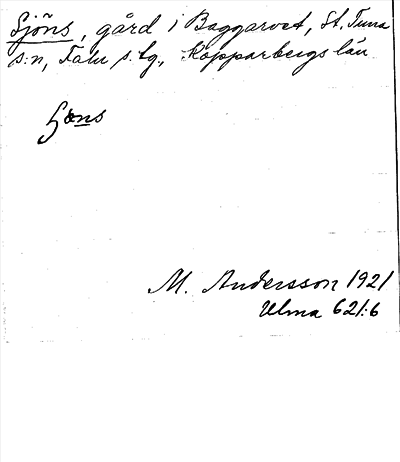 Sjöns, gård i Baggarvet, St. Tuna
s:n, Falu s. lg., Kopparbergs län
M. Andersson 1921
Ulma 621:6